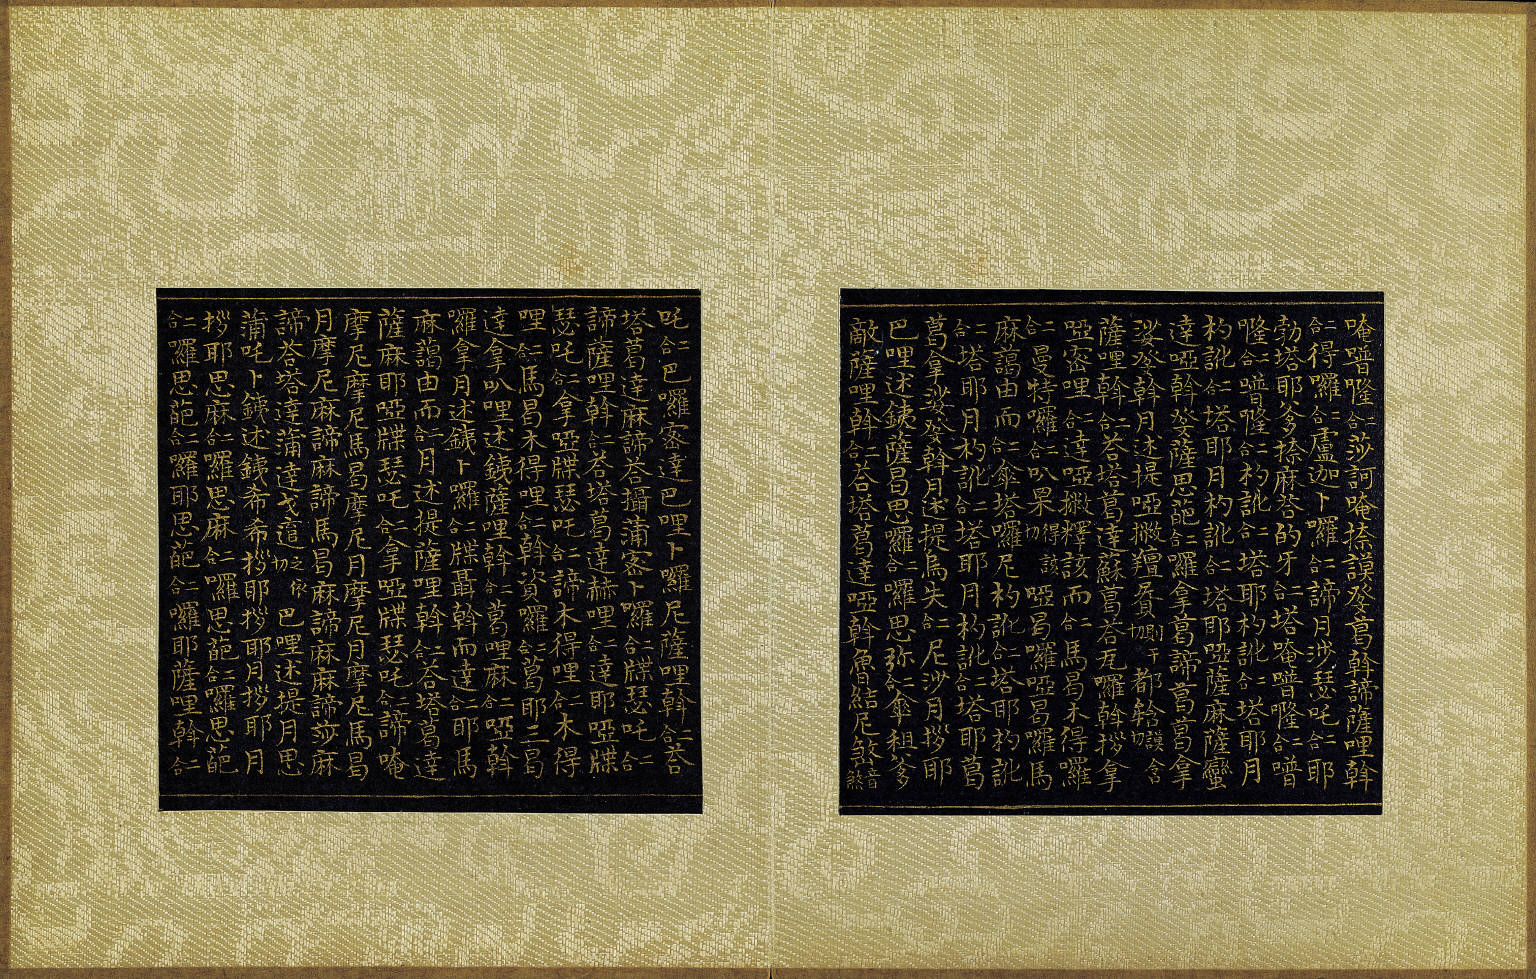 唵噆隆二合莎訶唵捺謨癹葛斡諦薩哩斡
二合得囉二合盧迦卜囉二合諦月沙瑟吒二合耶
勃塔耶爹捺麻荅的牙二合塔唵噆隆二合噆
隆二合噆隆二合杓訛二合塔耶杓訛二合塔耶月
杓訛二合塔耶月杓訛二合塔耶啞薩麻薩蠻
達啞斡癹薩思葩二合囉拿葛諦葛葛拿
娑癹斡月述提啞撒羶
薩哩斡二合荅塔葛達蘇葛荅瓦囉斡拶拿
啞密哩二合達啞撒釋該而二合馬曷木得囉
二合曼特囉二合叭杲得該切啞曷囉啞曷囉馬
麻藹由而二合傘塔囉尼杓訛二合塔耶杓訛
二合塔耶月杓訛二合塔耶月杓訛二合塔耶葛
葛拿娑癹斡月述提烏失二合尼沙月拶耶
巴哩述銕薩曷思囉二合囉思弥二合傘租爹
敵薩哩斡二合荅塔葛達啞斡魯結尼煞音煞
吒二合巴囉密達巴哩卜囉尼薩哩斡二合荅
塔葛達麻諦荅攝蒲密卜囉二合牒瑟吒二合
諦薩哩斡二合荅塔葛達赫哩二合達耶啞牒
瑟吒二合拿啞牒瑟吒二合諦木得哩二合木得
哩二合馬曷木得哩二合斡資囉二合葛耶三曷
達拿叭哩述銕薩哩斡二合葛哩麻二合啞斡
囉拿月述銕卜囉二合牒聶斡而達二合耶馬
麻藹由而二合月述提薩哩斡二合荅塔葛達
薩麻耶啞牒瑟吒二合拿啞牒瑟吒二合諦唵
摩尼摩尼馬曷摩尼月摩尼月摩尼馬曷
月摩尼麻諦麻諦馬曷麻諦麻麻諦莎麻
諦荅塔達蒲達戈巴哩述提月思
蒲吒卜銕述銕希希拶耶拶耶月拶耶月
拶耶思麻二合囉思麻二合囉思葩二合囉思葩
二合囉思葩二合囉耶思葩二合囉耶薩哩斡二合